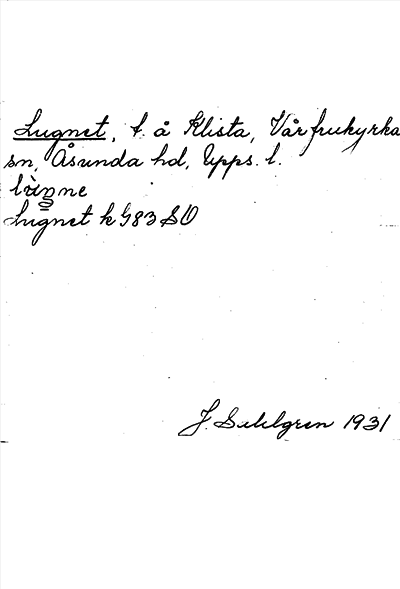 Lugnet, t. å Klista, Vårfrukyrka
sn, Åsunda hd, Upps. l.
Lugnet k G83 SO
J. Sahlgren 1931